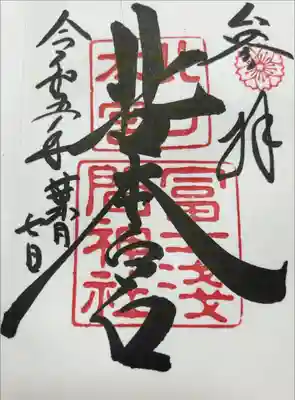 参拝
北口本宮
令和五年葉月
七日
北口
本宮
冨士淺
間神社